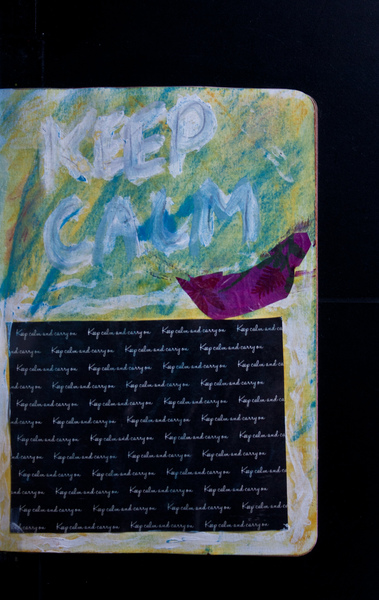 KEEP
CALM
Keep calm and carry on Keep calm and carry on Keep calm and carry on Keep calm and
carry on Keep calm and carry on Keep calm and carry on Keep calm and carry on
Keep calm and carry on Keep calm and carry on Keep calm and carry on Keep calm and
carry on Keep calm and carry on Keep calm and carry on Keep calm and carry on
Keep calm and carry on Keep calm and carry on Keep calm and carry on Keep calm and
carry on Keep calm and carry on Keep calm and carry on Keep calm and carry on
Keep calm and carry on Keep calm and carry on Keep calm and carry on Keep calm and
carry on Keep calm and carry on Keep calm and carry on Keep calm and carry on
Keep calm and carry on Keep calm and carry on Keep calm and carry on Keep calm and
carry on Keep calm and carry on Keep calm and carry on Keep calm and carry on
Keep calm and carry on Keep calm and carry on Keep calm and carry on Keep calm and
carry on Keep calm and carry on Keep calm and carry on Keep calm and carry on